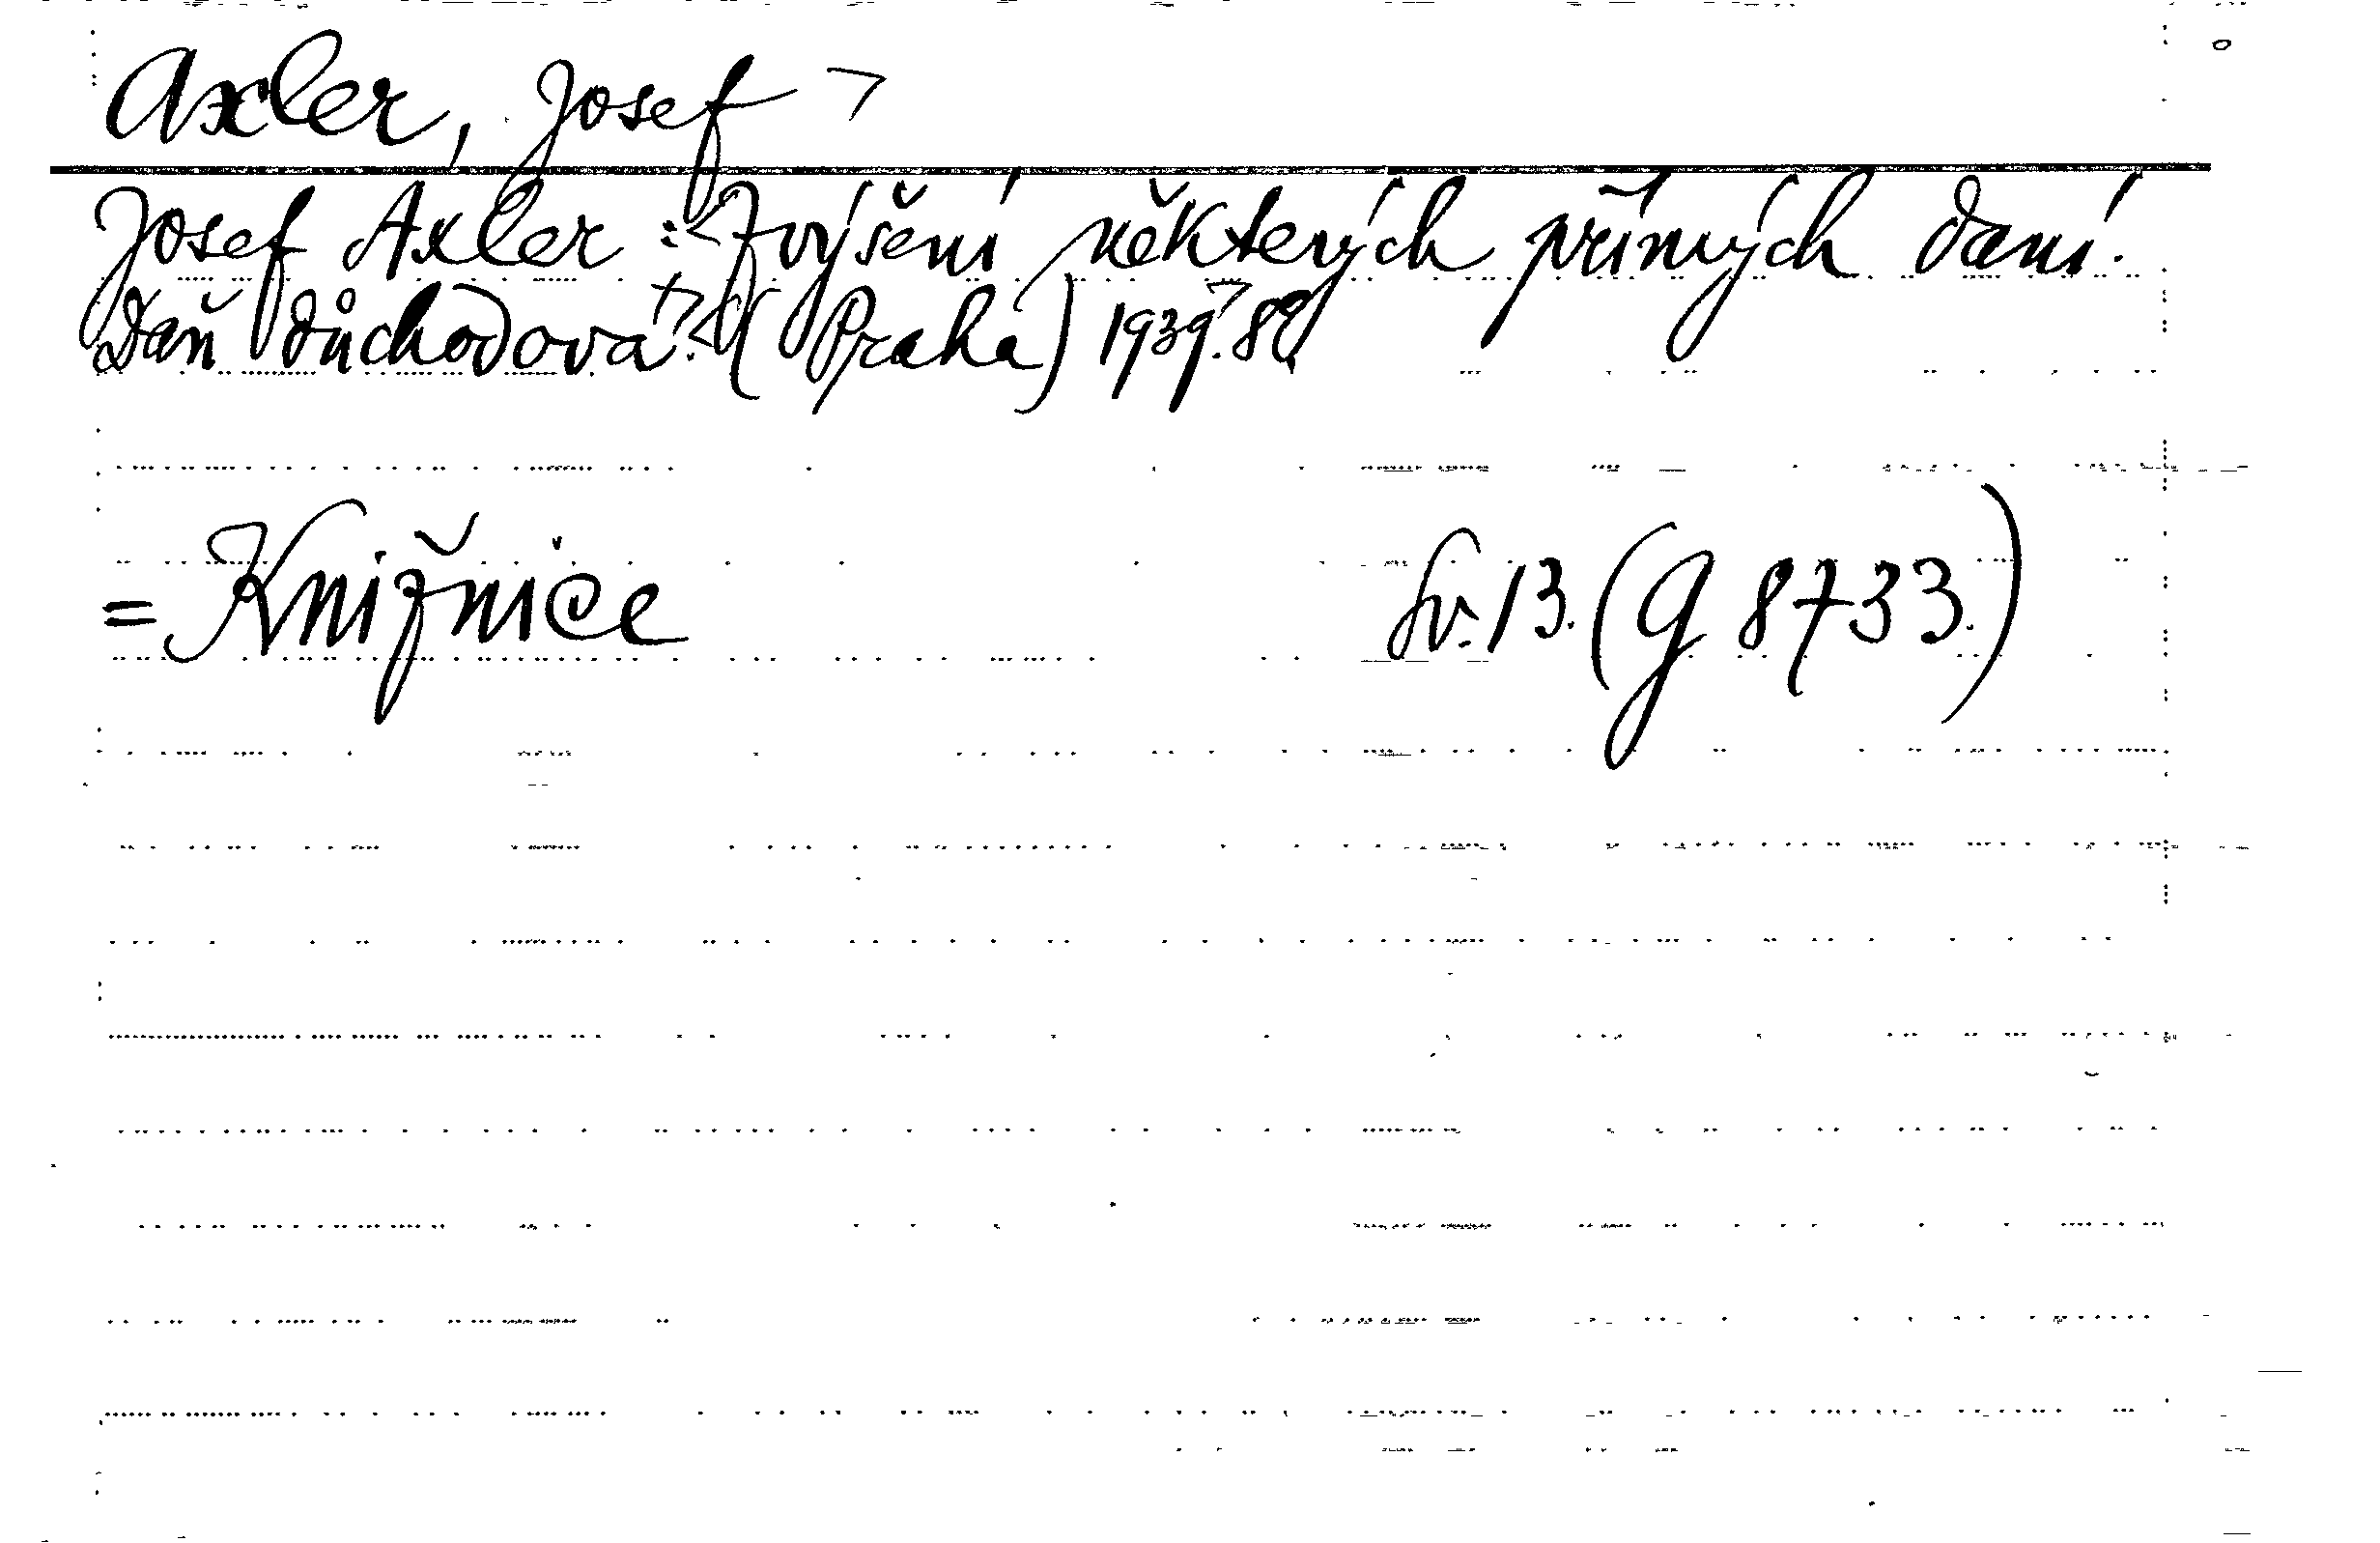 Axler, Josef >
Josef Axler: <Zvýšení některých přímých daní.
Daň důchodová.>< (Praha) 1939.> 8°.
= Knižnice Sv. 13. (G 8733.)